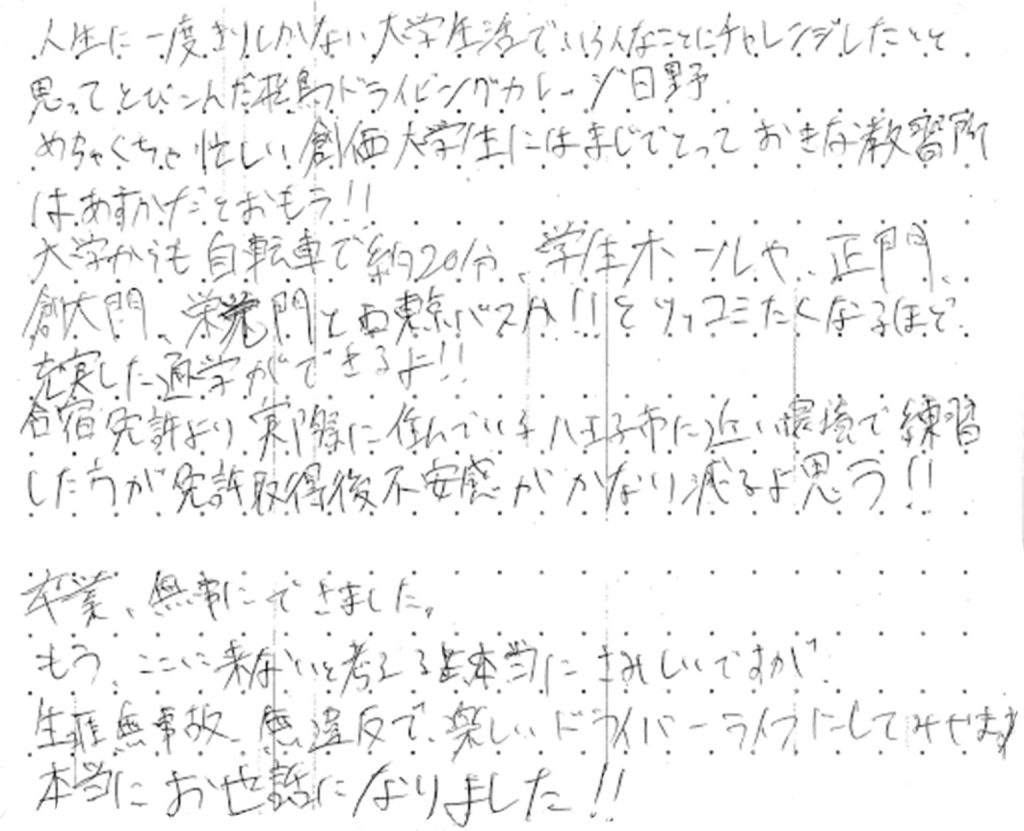 人生に一度きりしかない大学生活でいろんなことにチャレンジしたいと
思ってとびこんだ飛鳥ドライビングカレッジ日野
めちゃくちゃ忙しい創価大学生にはまじでとっておきな教習所
はあすかだとおもう!!
大学からも自転車で約20分、学生ホールや、正門、
創大門、栄光門と西東京バスか!!とツッコミたくなるほど
充実した通学ができるよ!!
合宿免許より実際に住んでいる八王子市に近い環境で練習
した方が免許取得後不安感がかなり減るよ思う!!
卒業、無事にできました。
もう、ここに来ないと考えると本当にさみしいですが、
生涯無事故、無違反で、楽しいドライバーライフにしてみせます
本当にお世話になりました!!